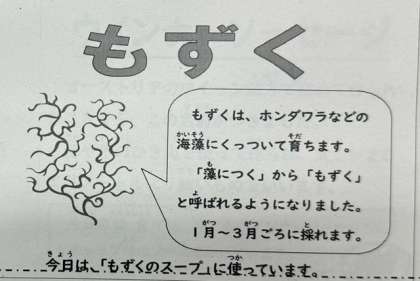 もずく
もずくは、ホンダワラなどの
海藻にくっついて育ちます。
「藻につく」から「もずく」
と呼ばれるようになりました。
1月～3月ごろに採れます。
今日は、「もずくのスープ」に使っています。